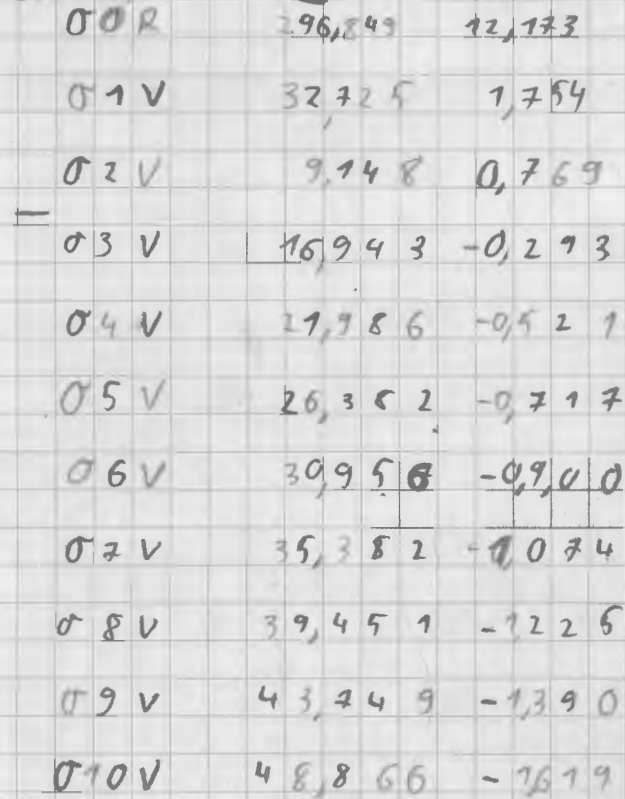 σ 0 R 296,849 12,173
σ 1 V 32,725 1,754
σ 2 V 9,148 0,769
σ 3 V 16,943 -0,293
σ 4 V 21,986 -0,521
σ 5 V 26,382 -0,717
σ 6 V 30,956 -0,900
σ 7 V 35,382 -1,074
σ 8 V 39,451 -1,226
σ 9 V 43,749 -1,390
σ 10 V 48,866 -1,619